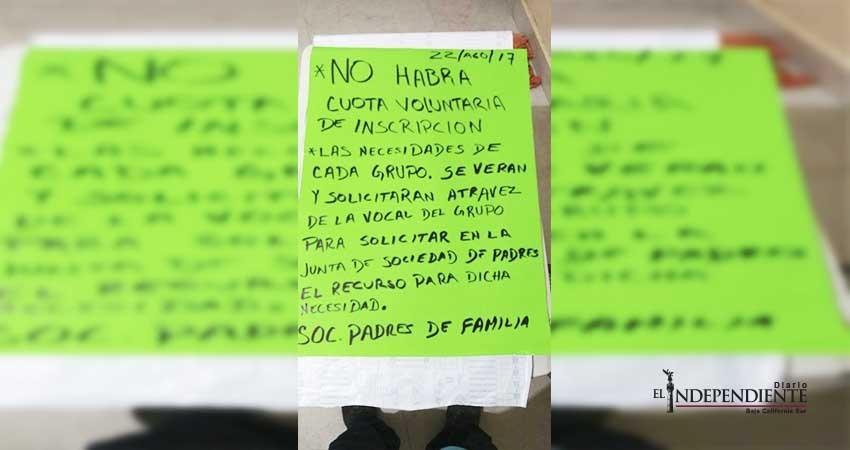 22/AGO/17
*NO HABRA
CUOTA VOLUNTARIA
DE INSCRIPCION
*LAS NECESIDADES DE
CADA GRUPO. SE VERAN
Y SOLICITARAN ATRAVEZ
DE LA VOCAL DEL GRUPO
PARA SOLICITAR EN LA
JUNTA DE SOCIEDAD DE PADRES
EL RECURSO PARA DICHA
NECESIDAD.
SOC. PADRES DE FAMILIA
Diario
EL INDEPENDIENTE
Baja California Sur